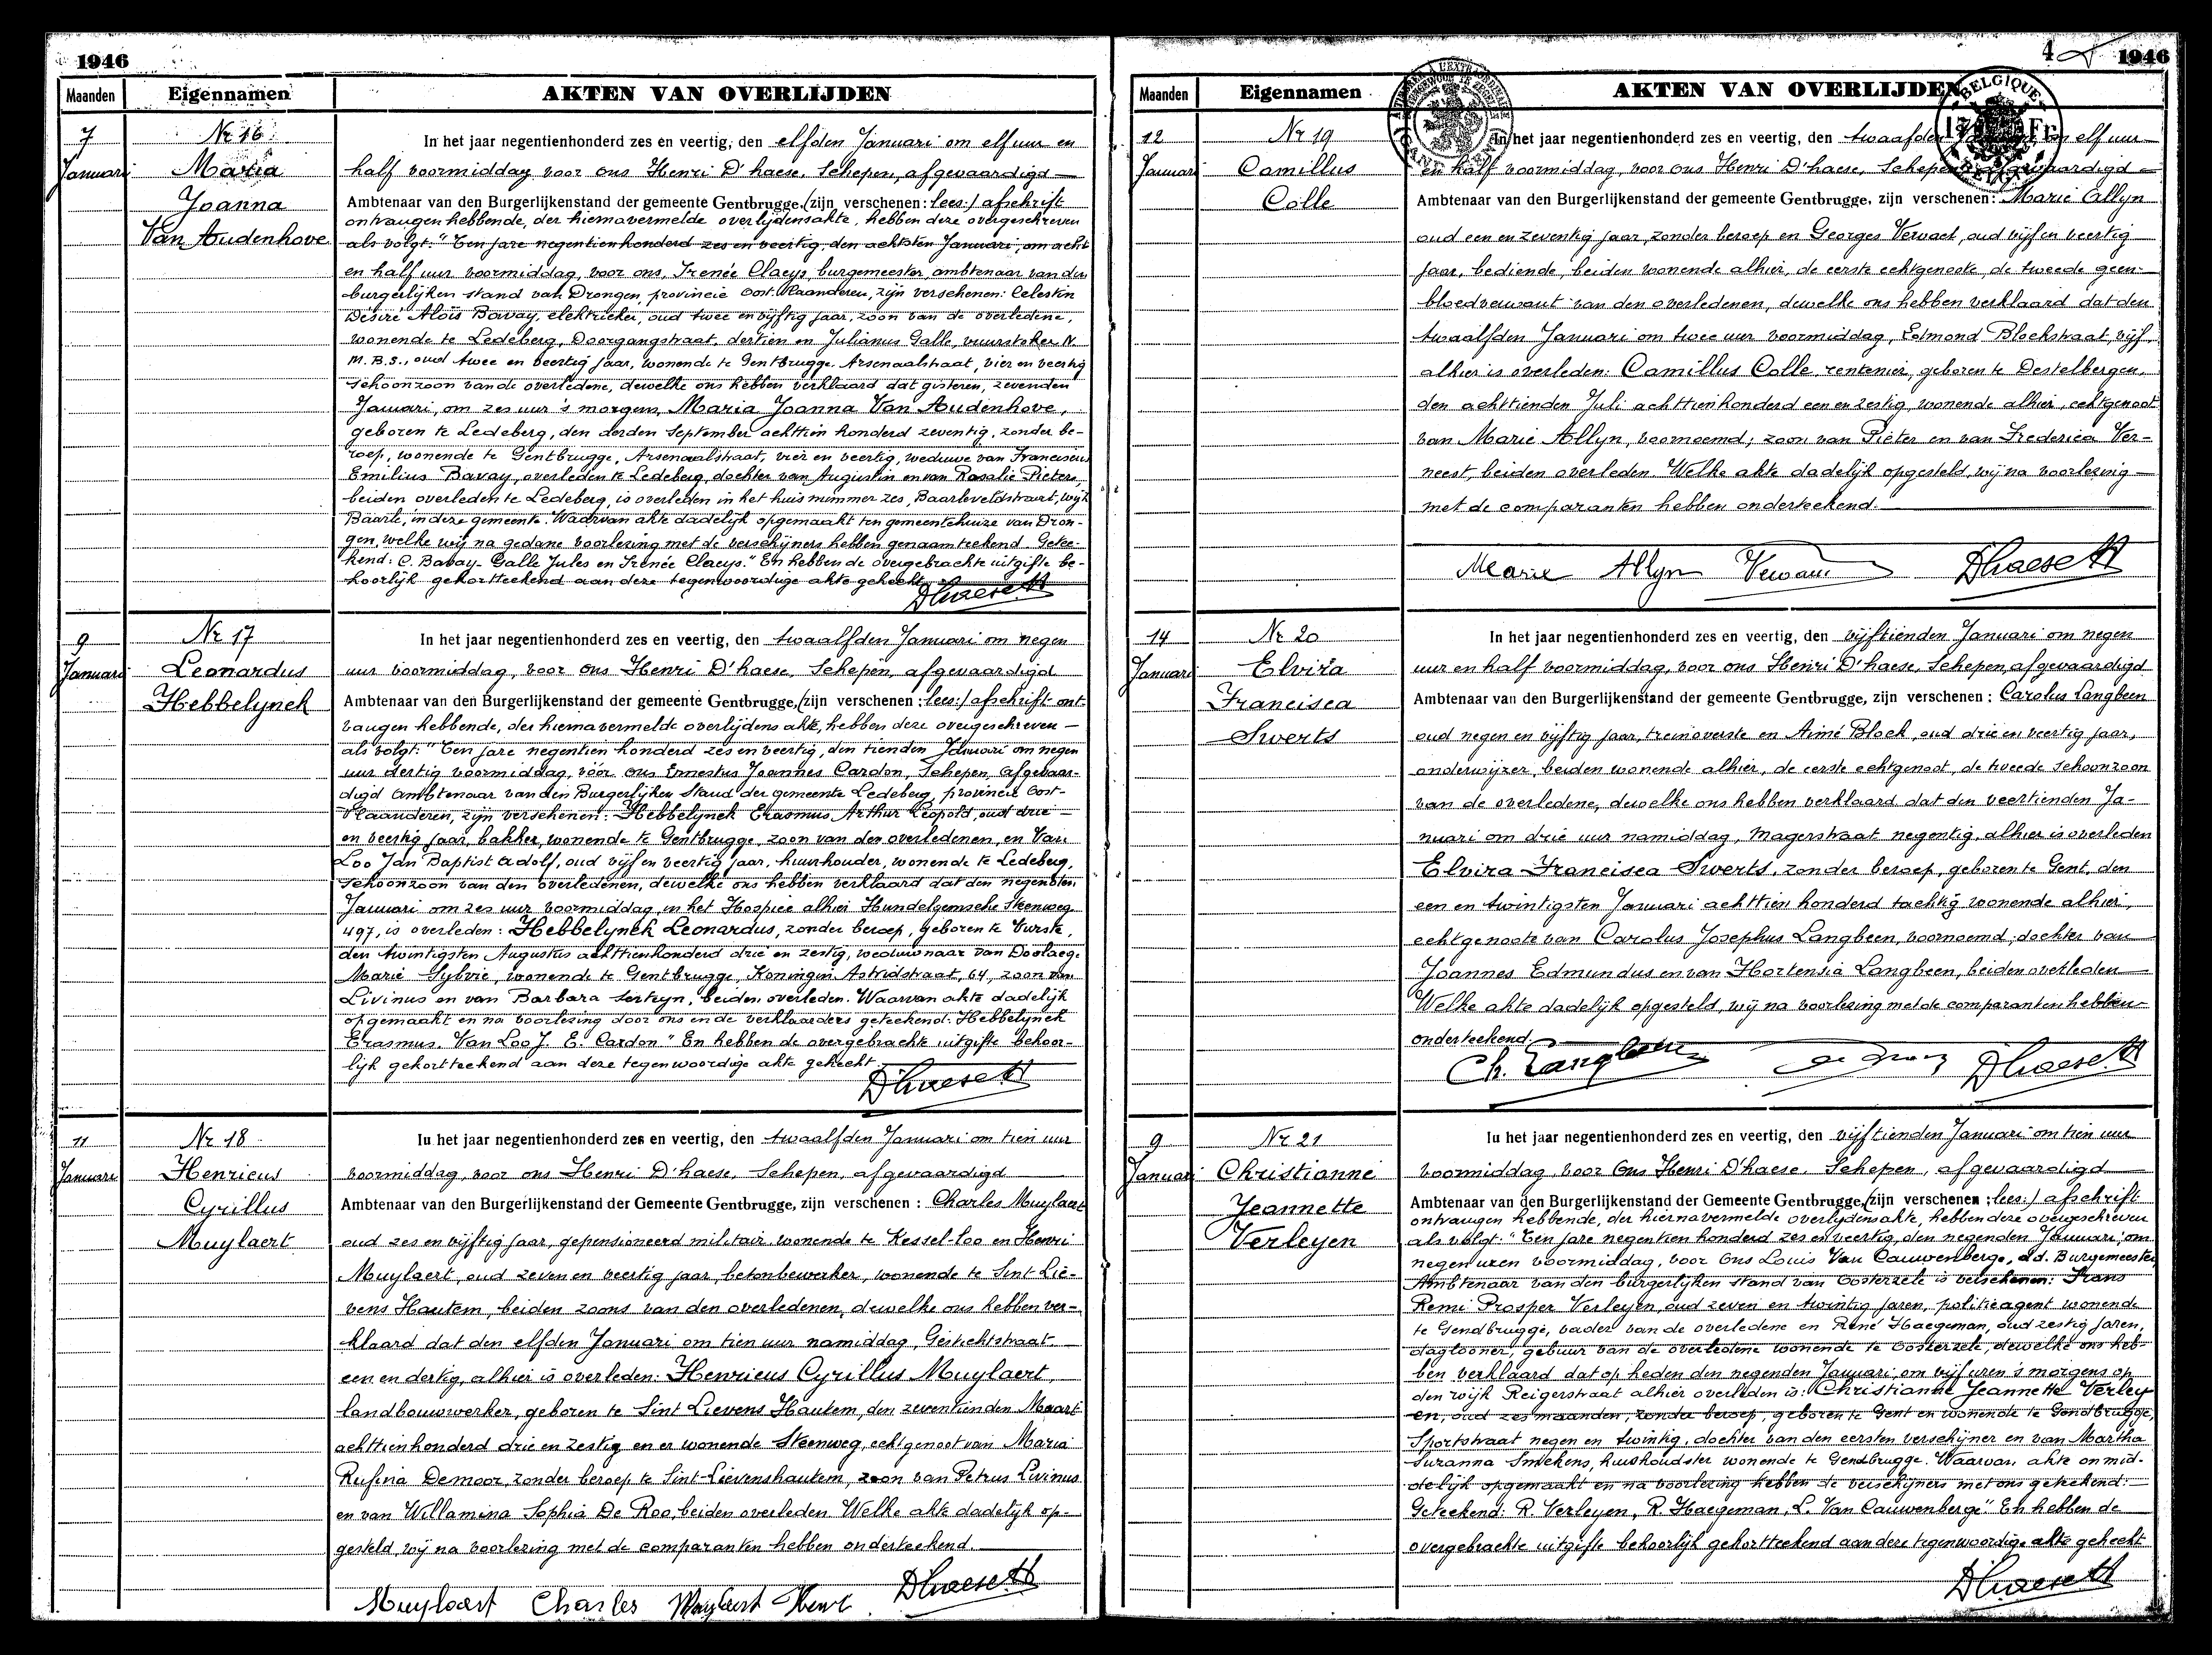 1946
Maanden
Eigennamen
AKTEN VAN OVERLIJDEN
7
Januari
Nr 16
Maria
Joanna
Van Audenhove
In het jaar negentienhonderd zes en veertig, den elfden Januari om elf uur en
half voormiddag voor ons Henri D'haese, Schepen, afgevaardigd
Ambtenaar van den Burgerlijkenstand der gemeente Gentbrugge, (zijn verschenen: lees:) afschrift
ontvangen hebbende, der hiernavermelde overlijdensakte, hebben deze overgeschreven
als volgt: "Ten jare negentienhonderd zes en veertig, den achtsten Januari, om acht
en half uur voormiddag, voor ons, Irenée Claeys, burgemeester, ambtenaar van den
burgerlijken stand van Drongen, provincie Oost-Vlaanderen, zijn verschenen: Celestin
Désiré Aloïs Bavay, elektrieker, oud twee en vijftig jaar, zoon van de overledene,
wonende te Ledeberg, Doorgangstraat, dertien en Julianus Galle, vuurstoker N.
M.B.S., oud twee en veertig jaar, wonende te Gentbrugge, Arsenaalstraat, vier en veertig
schoonzoon van de overledene, dewelke ons hebben verklaard dat gisteren, zevenden
Januari, om zes uur 's morgens, Maria Joanna Van Audenhove,
geboren te Ledeberg, den derden September achttien honderd zeventig, zonder be-
roep, wonende te Gentbrugge, Arsenaalstraat, vier en veertig, weduwe van Franciscus
Emilius Bavay, overleden te Ledeberg, dochter van Augustin en van Rosalie Pieters,
beiden overleden te Ledeberg, is overleden in het huis nummer zes, Baarleveldstraat, wijk
Baarle, in deze gemeente. Waarvan akte dadelijk opgemaakt ten gemeentehuize van Dron-
gen, welke wij na gedane voorlezing met de verschijners hebben genaamteekend. Getee-
kend: C. Bavay - Galle Jules en Irenée Claeys." En hebben de overgebrachte uitgifte be-
hoorlijk gekortteekend aan deze tegenwoordige akte gehecht.
Dhaese H
9
Januari
Nr 17
Leonardus
Hebbelynck
In het jaar negentienhonderd zes en veertig, den twaalfden Januari om negen
uur voormiddag, voor ons Henri D'haese, Schepen, afgevaardigd
Ambtenaar van den Burgerlijkenstand der gemeente Gentbrugge, (zijn verschenen: lees:) afschrift ont-
vangen hebbende, der hiernavermelde overlijdens akte, hebben deze overgeschreven
als volgt: "Ten jare negentien honderd zes en veertig, den tienden Januari om negen
uur dertig voormiddag, vóór ons Ernestus Joannes Cardon, Schepen, afgevaar-
digd Ambtenaar van den Burgerlijken Stand der gemeente Ledeberg, provincie Oost-
Vlaanderen, zijn verschenen: Hebbelynck Erasmus Arthur Leopold, oud drie
en veertig jaar, bakker, wonende te Gentbrugge, zoon van den overledenen, en Van
Loo Jan Baptist Adolf, oud vijf en veertig jaar, huurhouder, wonende te Ledeberg,
schoonzoon van den overledenen, dewelke ons hebben verklaard dat den negensten
Januari om zes uur voormiddag, in het Hospice alhier Hundelgemsche Steenweg
497, is overleden: Hebbelynck Leonardus, zonder beroep, geboren te Vurste,
den twintigsten Augustus achttienhonderd drie en zestig, weduwnaar van Doolaege
Marie Sylvie, wonende te Gentbrugge, Koningin Astridstraat, 64, zoon van
Livinus en van Barbara Serteyn, beiden overleden. Waarvan akte dadelijk
opgemaakt en na voorlezing door ons en de verklaarders geteekend: Hebbelynck
Erasmus. Van Loo J. E. Cardon." En hebben de overgebrachte uitgifte behoor-
lijk gekortteekend aan deze tegenwoordige akte gehecht.
Dhaese H
11
Januari
Nr 18
Henricus
Cyrillus
Muylaert
In het jaar negentienhonderd zes en veertig, den twaalfden Januari om tien uur
voormiddag, voor ons Henri D'haese, Schepen, afgevaardigd
Ambtenaar van den Burgerlijkenstand der Gemeente Gentbrugge, zijn verschenen: Charles Muylaert
oud zes en vijftig jaar, gepensioneerd militair wonende te Kessel-loo en Henri
Muylaert, oud zeven en veertig jaar, betonbewerker, wonende te Sint Lie-
vens Hautem, beiden zoons van den overledenen, dewelke ons hebben ver-
klaard dat den elfden Januari om tien uur namiddag, Gestichtstraat
een en dertig, alhier is overleden: Henricus Cyrillus Muylaert,
landbouwwerker, geboren te Sint Lievens Hautem, den zeventienden Maart
achttienhonderd drie en zestig en er wonende Steenweg, echtgenoot van Maria
Rufina Demoor, zonder beroep te Sint-Lievenshautem, zoon van Petrus Livinus
en van Willamina Sophia De Roo, beiden overleden. Welke akte dadelijk op-
gesteld, wij na voorlezing met de comparanten hebben onderteekend.
Muylaert Charles Muylaert Henri Dhaese H
4
1946
Maanden
Eigennamen
AKTEN VAN OVERLIJDEN
BELGIQUE
12
Januari
Nr 19
Camillus
Colle
In het jaar negentienhonderd zes en veertig, den twaalfden Januari om elf uur
en half voormiddag, voor ons Henri D'haese, Schepen, afgevaardigd
Ambtenaar van den Burgerlijkenstand der gemeente Gentbrugge, zijn verschenen: Marie Allyn
oud een en zeventig jaar, zonder beroep en Georges Vervaet, oud vijf en veertig
jaar, bediende, beiden wonende alhier, de eerste echtgenoote, de tweede geen
bloedverwant van den overledenen, dewelke ons hebben verklaard dat den
twaalfden Januari om twee uur voormiddag, Edmond Blockstraat, vijf,
alhier is overleden: Camillus Colle, rentenier, geboren te Destelbergen,
den achttienden Juli achttienhonderd een en zestig, wonende alhier, echtgenoot
van Marie Allyn, voornoemd; zoon van Pieter en van Frederica Ver-
neest, beiden overleden. Welke akte dadelijk opgesteld, wij na voorlezing
met de comparanten hebben onderteekend.
Marie Allyn Dhaese H
14
Januari
Nr 20
Elvira
Francisca
Swerts
In het jaar negentienhonderd zes en veertig, den vijftienden Januari om negen
uur en half voormiddag, voor ons Henri D'haese, Schepen, afgevaardigd
Ambtenaar van den Burgerlijkenstand der gemeente Gentbrugge, zijn verschenen: Carolus Langbeen
oud negen en vijftig jaar, treinoverste en Aimé Block, oud drie en veertig jaar,
onderwijzer, beiden wonende alhier, de eerste echtgenoot, de tweede schoonzoon
van de overledene, dewelke ons hebben verklaard dat den veertienden Ja-
nuari om drie uur namiddag, Magerstraat negentig, alhier is overleden
Elvira Francisca Swerts, zonder beroep, geboren te Gent, den
een en twintigsten Januari achttien honderd tachtig wonende alhier,
echtgenoote van Carolus Josephus Langbeen, voornoemd; dochter van
Joannes Edmundus en van Hortensia Langbeen, beiden overleden
Welke akte dadelijk opgesteld, wij na voorlezing met de comparanten hebben
onderteekend.
Ch. Langbeen Dhaese H
9
Januari
Nr 21
Christianne
Jeannette
Verleyen
In het jaar negentienhonderd zes en veertig, den vijftienden Januari om tien uur
voormiddag, voor Ons Henri D'haese, Schepen, afgevaardigd
Ambtenaar van den Burgerlijkenstand der Gemeente Gentbrugge, (zijn verschenen: lees:) afschrift
ontvangen hebbende, der hiernavermelde overlijdensakte, hebben deze overgeschreven
als volgt: "Ten jare negentien honderd zes en veertig, den negenden Januari, om
negen uren voormiddag, voor Ons Louis Van Cauwenberge, d.d. Burgemeester
Ambtenaar van den burgerlijken stand van Oosterzele is verschenen: Frans
Remi Prosper Verleyen, oud zeven en twintig jaren, politieagent wonende
te Gendbrugge, vader van de overledene en René Haegeman, oud zestig jaren,
daglooner, gebuur van de overledene wonende te Oosterzele, dewelke ons heb-
ben verklaard dat op heden den negenden Januari, om vijf uren 's morgens op
den wijk Reigerstraat alhier overleden is: Christianne Jeannette Verley
en, oud zes maanden, zonder beroep, geboren te Gent en wonende te Gendbrugge,
Sportstraat negen en twintig, dochter van den eersten verschijner en van Martha
Suzanna Smekens, huishoudster wonende te Gendbrugge. Waarvan akte onmid-
delijk opgemaakt en na voorlezing hebben de verschijners met ons geteekend:
Geteekend: R. Verleyen, R. Haegeman, L. Van Cauwenberge." En hebben de
overgebrachte uitgifte behoorlijk gekortteekend aan deze tegenwoordige akte gehecht
Dhaese H